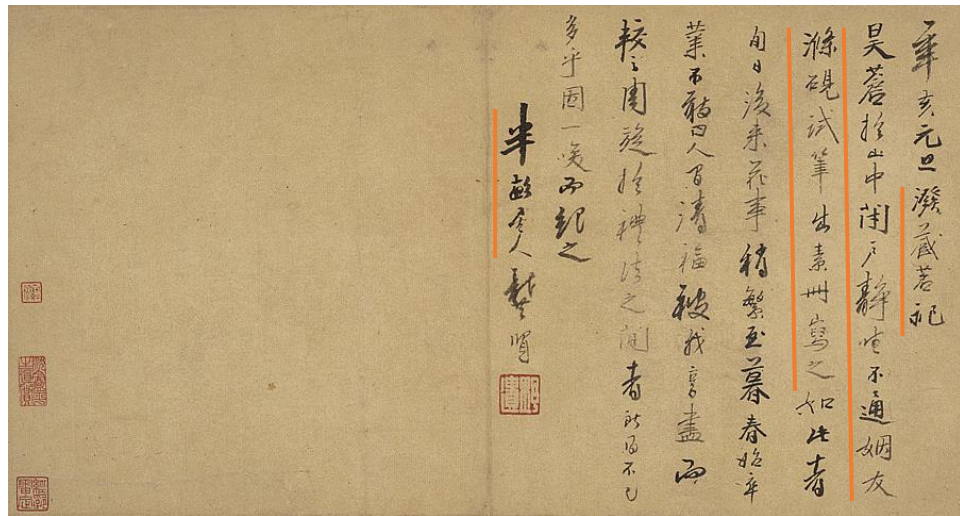 辛亥元旦潑藏茗祀
昊蒼於山中閉戶靜坐不通姻友
滌硯試筆出素冊寫之如此者
旬日後來花事稍繁至暮春始卒
業不敢曰人間清福被我享盡而
較之周旋於禮法之間者所得不已
多乎因一笑而紀之
半畝居人龔賢